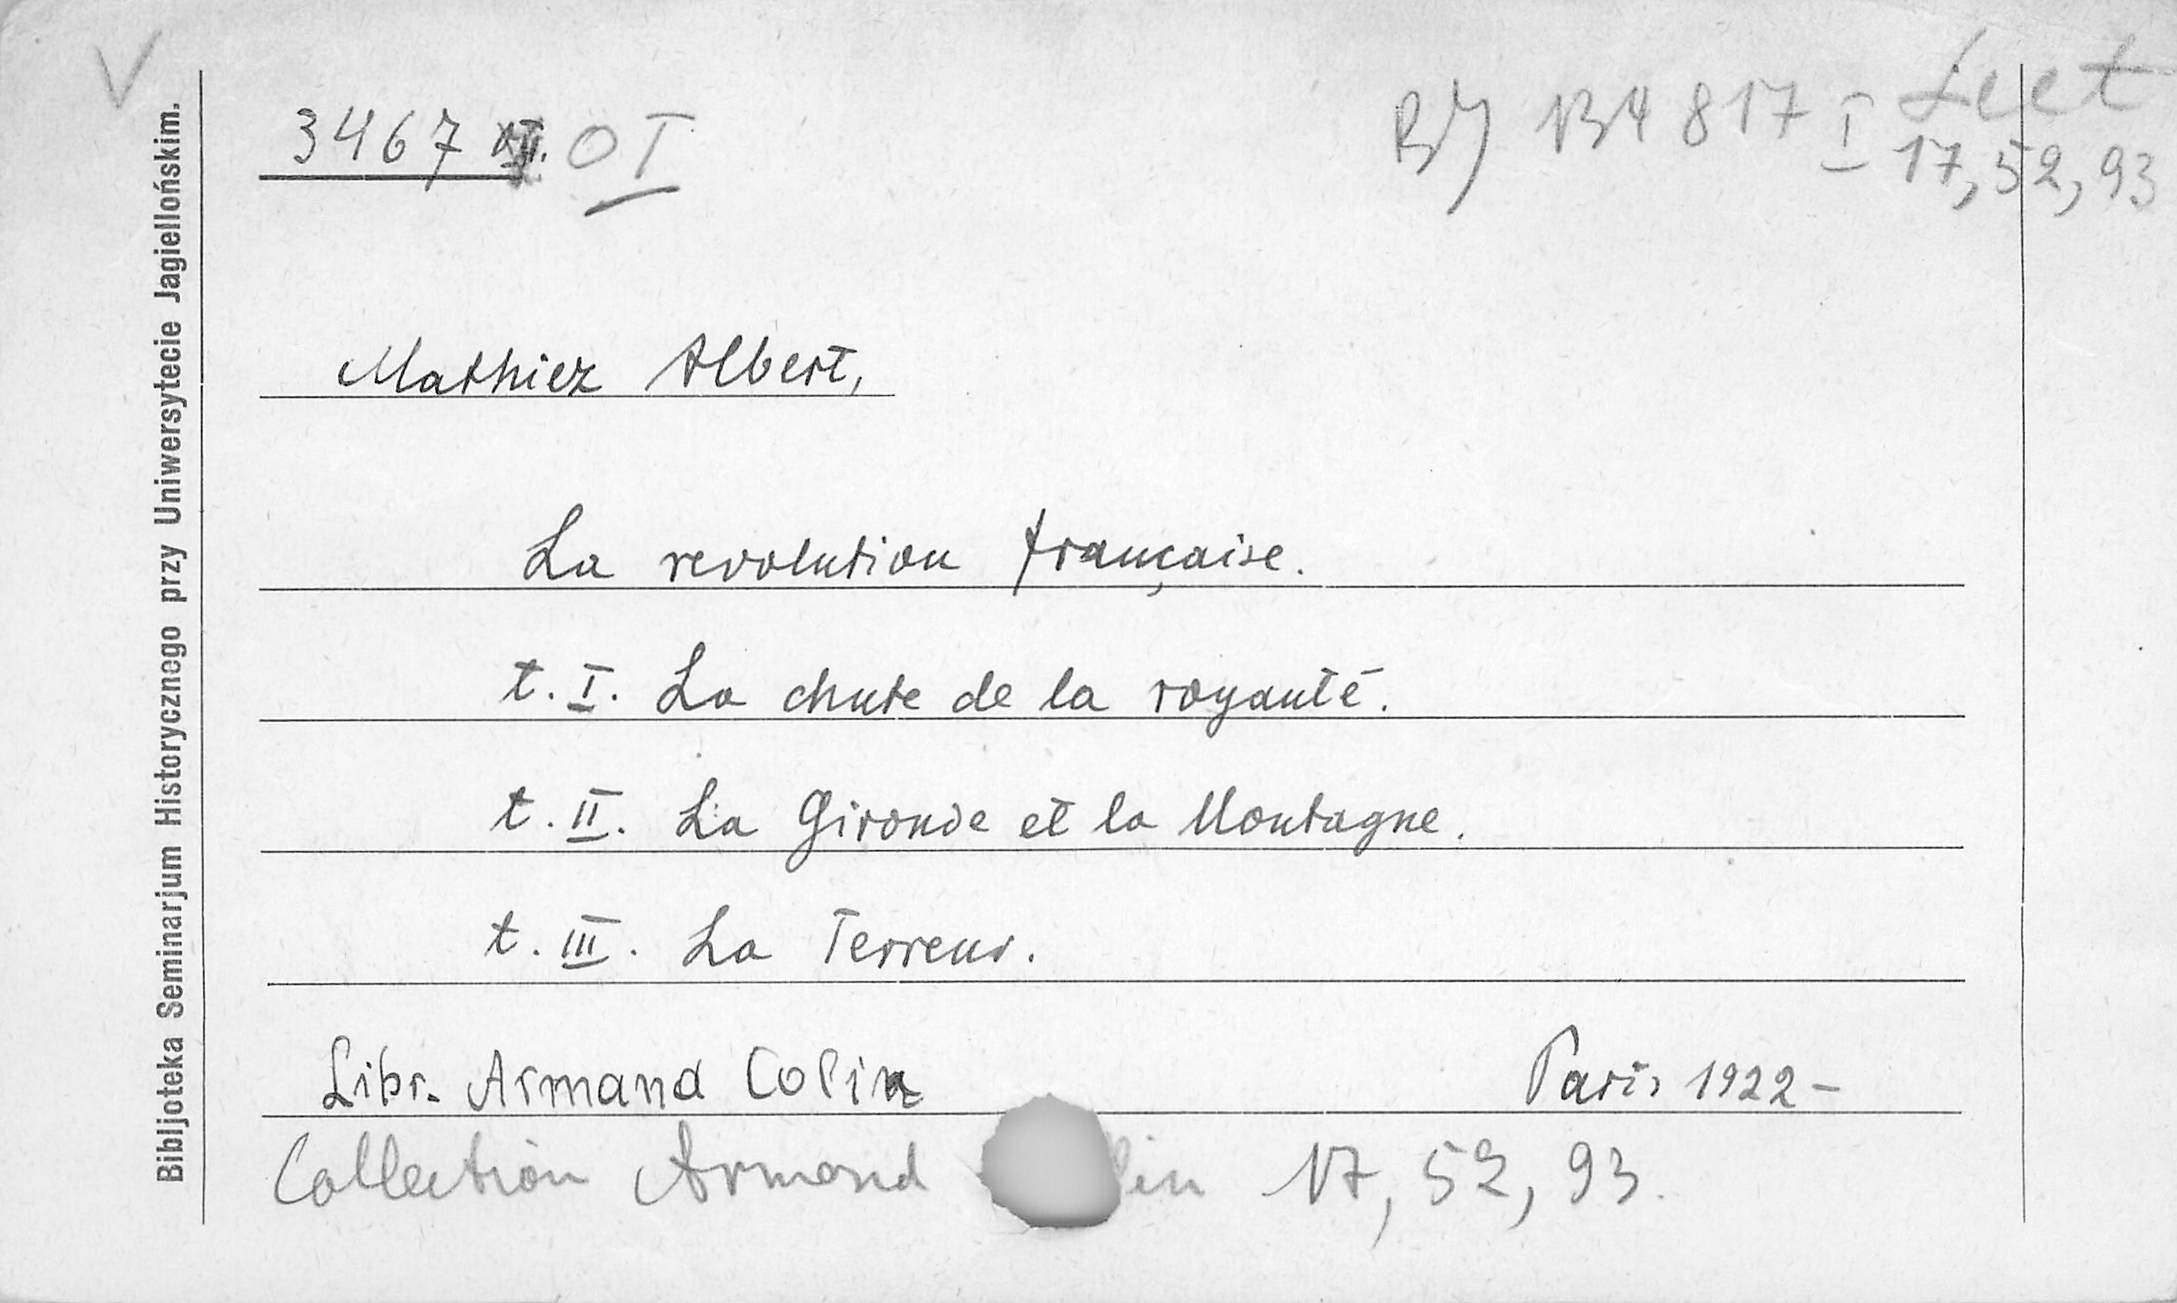 V
3467 OI
BJ 134817 I Lect
17, 52, 93
Mathiez Albert,
La revolution française.
t. I. La chute de la royauté.
t. II. La Gironde et la Montagne.
t. III. La Terreur.
Libr. Armand Colin Paris 1922-
Collection Armand lin 17, 52, 93.
Bibljoteka Seminarjum Historycznego przy Uniwersytecie Jagiellońskim.